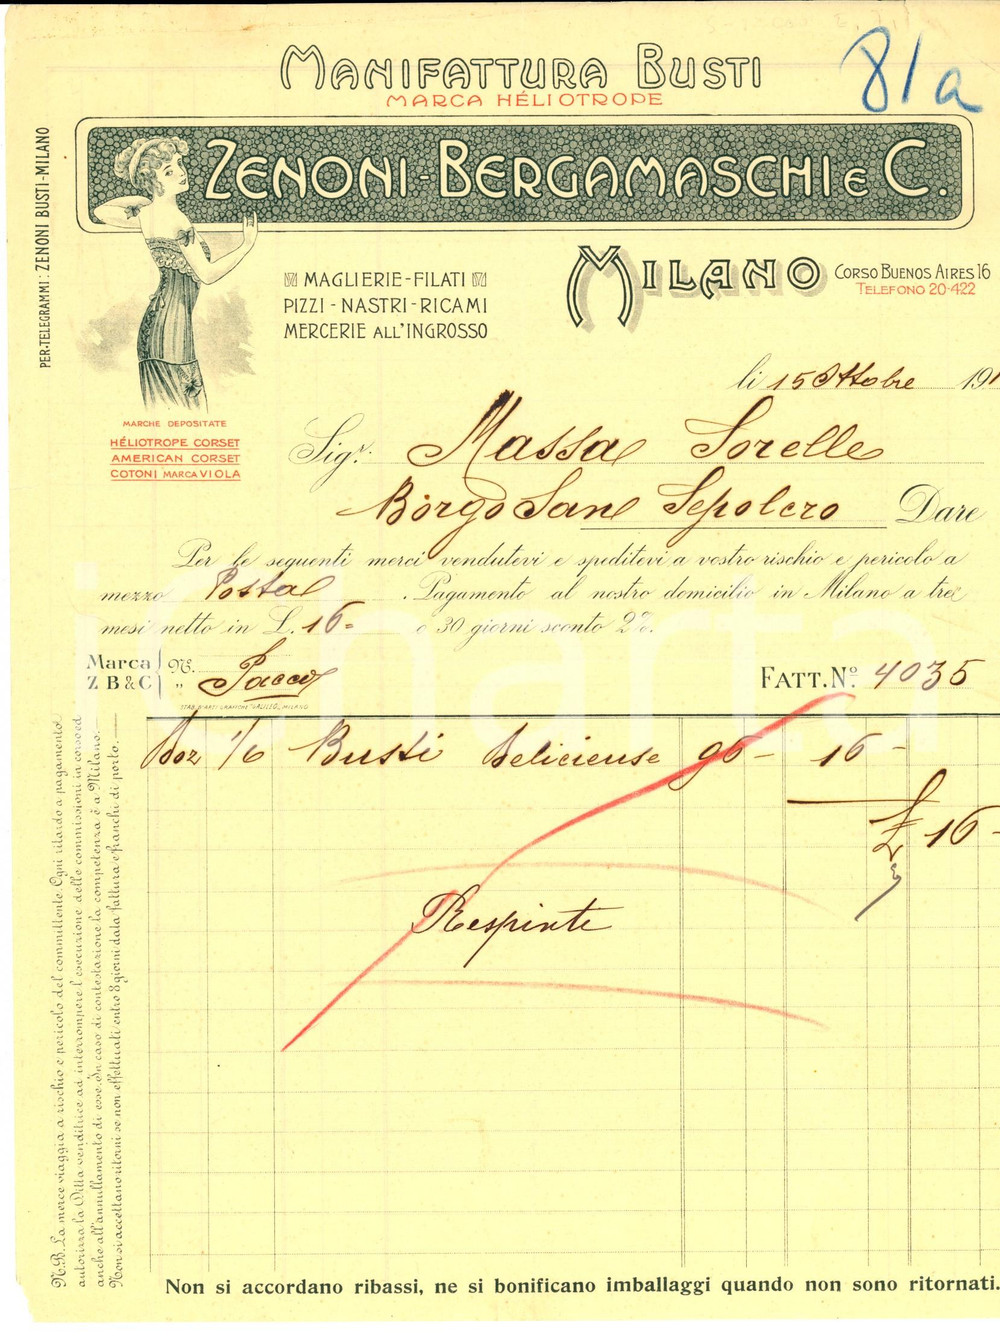 81a
MANIFATTURA BUSTI
MARCA HÉLIOTROPE
ZENONI-BERGAMASCHI E C.
PER TELEGRAMMI: ZENONI BUSTI-MILANO
MAGLIERIE-FILATI
PIZZI-NASTRI-RICAMI
MERCERIE ALL'INGROSSO
MILANO
CORSO BUENOS AIRES 16
TELEFONO 20-422
li 15 Ottobre 191
MARCHE DEPOSITATE
HÉLIOTROPE CORSET
AMERICAN CORSET
COTONI MARCA VIOLA
Sigr. Massa Sorelle
Borgo San Sepolcro Dare
Per le seguenti merci vendutevi e speditevi a vostro rischio e pericolo a
mezzo Postal. Pagamento al nostro domicilio in Milano a tre
mesi netto in L. 16= o 30 giorni sconto 2%.
Marca Z B & C N. " Pacco
FATT. No. 4035
STAB. D'ARTI GRAFICHE "GALILEO", MILANO
Doz 1/6 Busti Delicieuse 96- 16-
£ 16-
Respinte
N.B. La merce viaggia a rischio e pericolo del committente. Ogni ritardo a pagamento
autorizza la Ditta venditrice ad interrompere l'esecuzione delle commissioni in corso ed
anche all'annullamento di esse. In caso di contestazione la competenza è a Milano.
Non si accettano ritorni se non effettuati entro 8 giorni dalla fattura e franchi di porto.
Non si accordano ribassi, ne si bonificano imballaggi quando non sono ritornati.